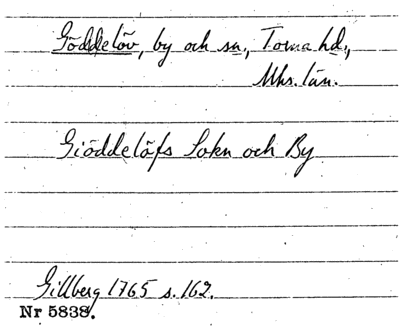 Göddelöv, by och sn., Torna hd.,
Mhs. län.
Giöddelöfs Sokn och By
Gillberg 1765 s. 162.
Nr 5838.